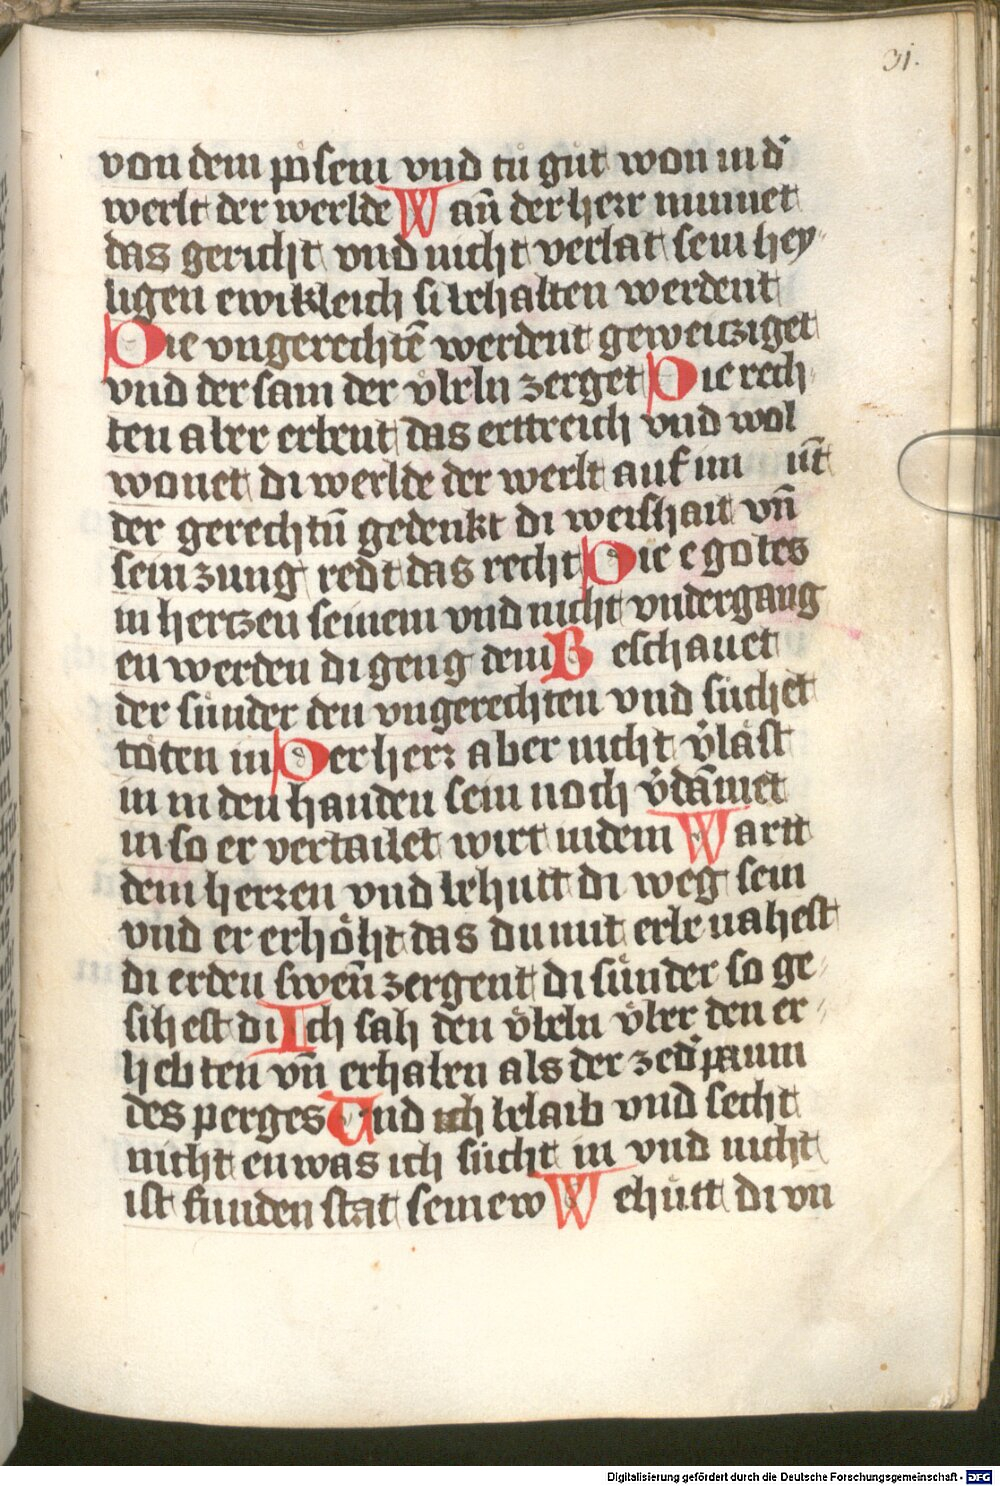 31.
von dem pösem vnd tů gůt won in d'
werlt der werlde Wan̄ der herr minnet
das gericht vnd nicht verlat sein hey-
ligen ewikleich si behalten werdent
Die vngerechtē werdent geweitziget
vnd der sam der v̊beln zerget Die rech-
ten aber erbent das erttreich vnd wol
wonet di werlde der werlt auf im
der gerechtñ gedenkt di weishait vn̄
sein zung redt das recht Die e gotes
in hertzen seinem vnd nicht vndergang
en werden di geng dem Beschauet
der sůnder den vngerechten vnd sůchet
töten in Der herr aber nicht v'läst
in in den handen sein noch v'dāmet
in so er vertailet wirt indem Wartt
dem herren vnd behutt di weg sein
vnd er erhöht das du mit erbe nahest
di erden swen̄ zergent di sůnder so ge-
sihest di Ich sah den v̊beln v̊ber den er-
hebten vn̄ erhaben als der zed'paum
des perges Und ich belaib vnd secht
nicht en was ich sůcht in vnd nicht
ist funden stat seinew Wehůtt di vn
Digitalisierung gefördert durch die Deutsche Forschungsgemeinschaft - DFG